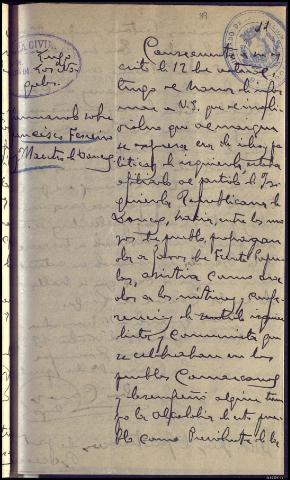 39
11
CIVIL
Informando sobre
Francisco Ferreiro
Maestro de Doncos
Consecuente a su es-
crito de 12 de actual
tengo el honor de infor-
mar a V.S. que el indi-
viduo que al margen
se expresa era de ideas po-
líticas de izquierda, estaba
afiliado al partido de Iz-
quierda Republicana de
Doncos, hacía, entre los ve-
cinos del pueblo, propagan-
da a favor del Frente Popu-
lar, asistía como ora-
dor a los mitines y confe-
rencias de izquier-
distas y Comunistas que
se celebraban en los
pueblos Comarcanos
y desempeñó algún tiem-
po la alcaldía de este pue-
blo como Presidente de la